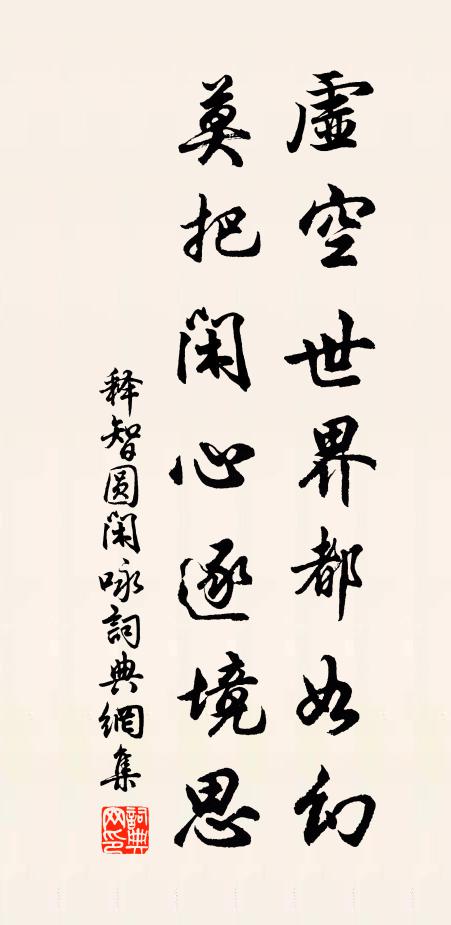 虛空世界都如幻
莫把閑心逐境思
释智圆閑咏詞典網集
詞典网印